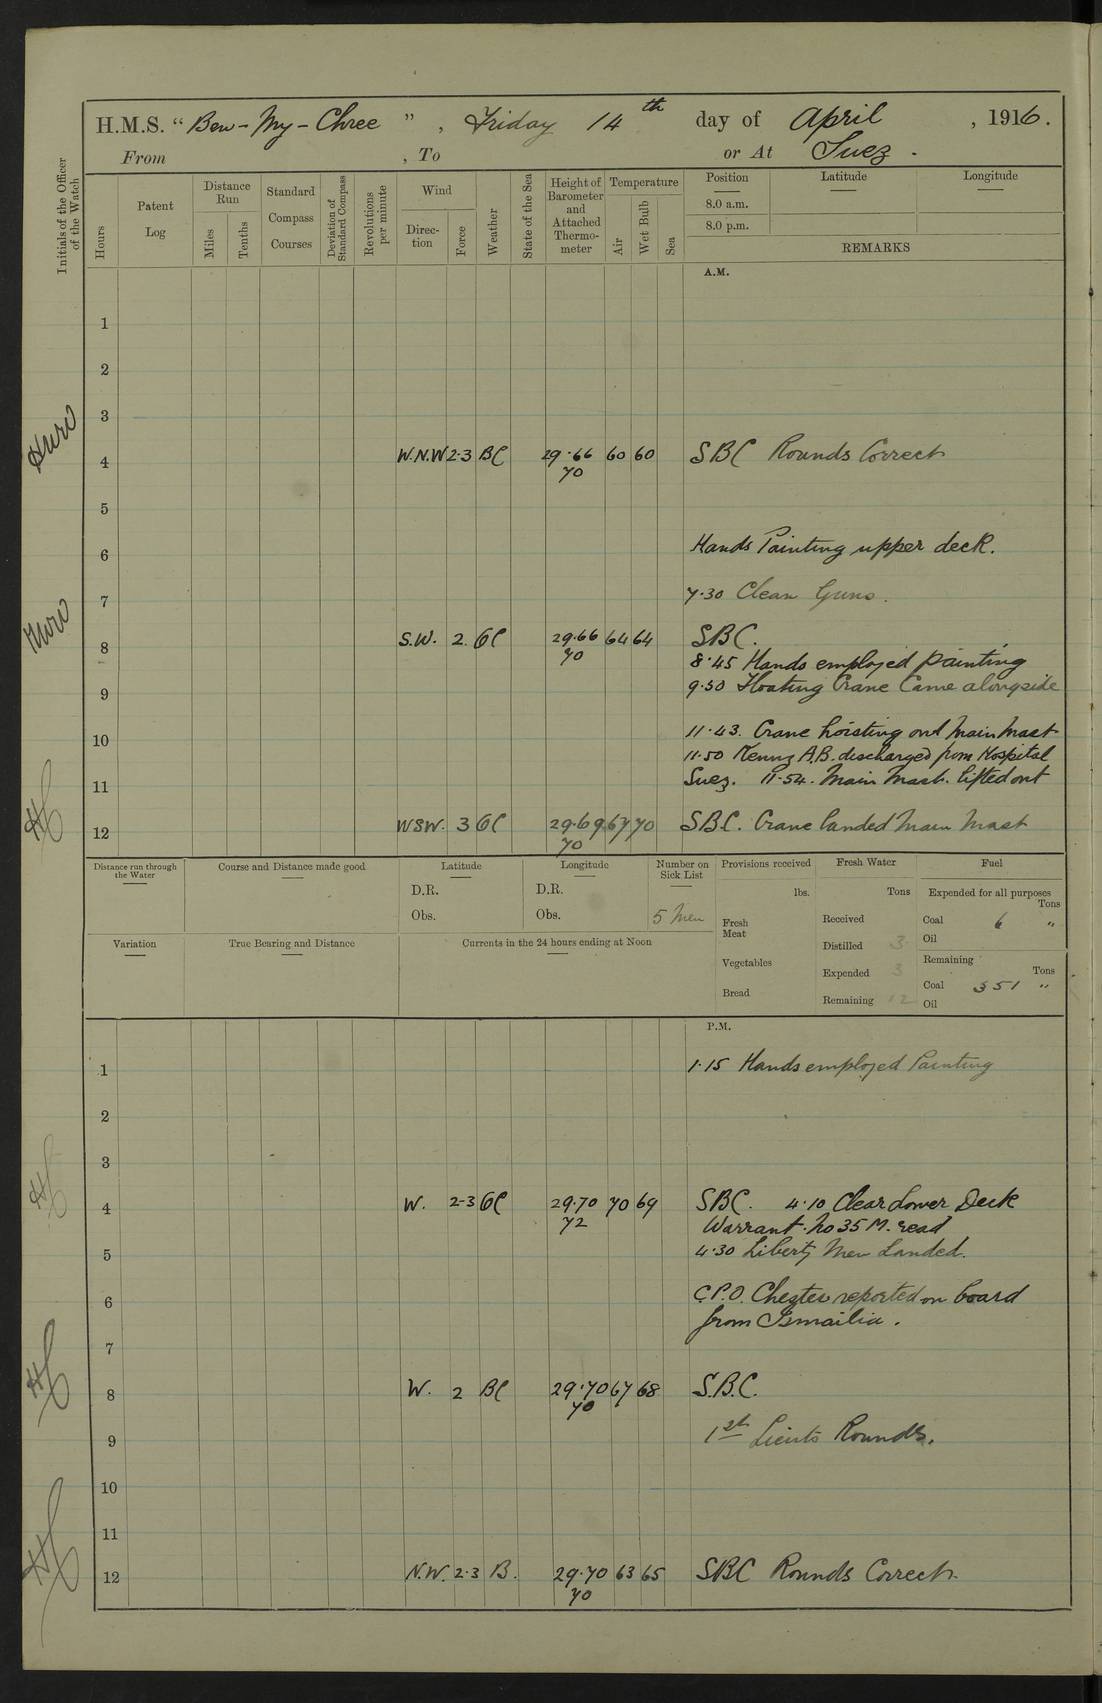 H.M.S. “Ben-My-Chree”, Friday 14th day of April, 1916.
From , To or At Suez.
Initials of the Officer of the Watch
Hours
Patent Log
Distance Run
Miles
Tenths
Standard Compass Courses
Deviation of Standard Compass
Revolutions per minute
Wind
Direction
Force
Weather
State of the Sea
Height of Barometer and Attached Thermometer
Temperature
Air
Wet Bulb
Sea
Position Latitude Longitude
8.0 a.m.
8.0 p.m.
REMARKS
A.M.
1
2
3
4 W.N.W 2-3 BC 29.66 60 60 SBC Rounds Correct
70
5
6 Hands Painting upper deck.
7 7.30 Clean Guns.
8 S.W. 2. OC 29.66 64 64 SBC.
70
8.45 Hands employed painting
9 9.50 Floating Crane Came alongside
10 11.43. Crane hoisting out Main Mast
11.50 Kenny A.B. discharged from Hospital
11 Suez. 11.54. Main Mast. lifted out
12 WSW. 3 OC 29.69 67 70 SBC. Crane landed Main Mast
70
Distance run through the Water
Course and Distance made good
Latitude
D.R.
Obs.
Longitude
D.R.
Obs.
Number on Sick List
5 Men
Provisions received
lbs.
Fresh Meat
Vegetables
Bread
Fresh Water
Tons
Received
Distilled 3
Expended 3
Remaining 12
Fuel
Expended for all purposes
Tons
Coal 6 "
Oil
Remaining
Tons
Coal 351 "
Oil
Variation
True Bearing and Distance
Currents in the 24 hours ending at Noon
P.M.
1 1.15 Hands employed Painting
2
3
4 W. 2-3 OC 29.70 70 69 SBC. 4.10 Clear Lower Deck
72
Warrant. No 35 M. read
5 4.30 Liberty Men Landed.
6 C.P.O. Chester reported on board
from Ismailia.
7
8 W. 2 BC 29.70 67 68 S.B.C.
70
9 1st Lieuts Rounds.
10
11
12 N.W. 2.3 B. 29.70 63 65 SBC Rounds Correct.
70